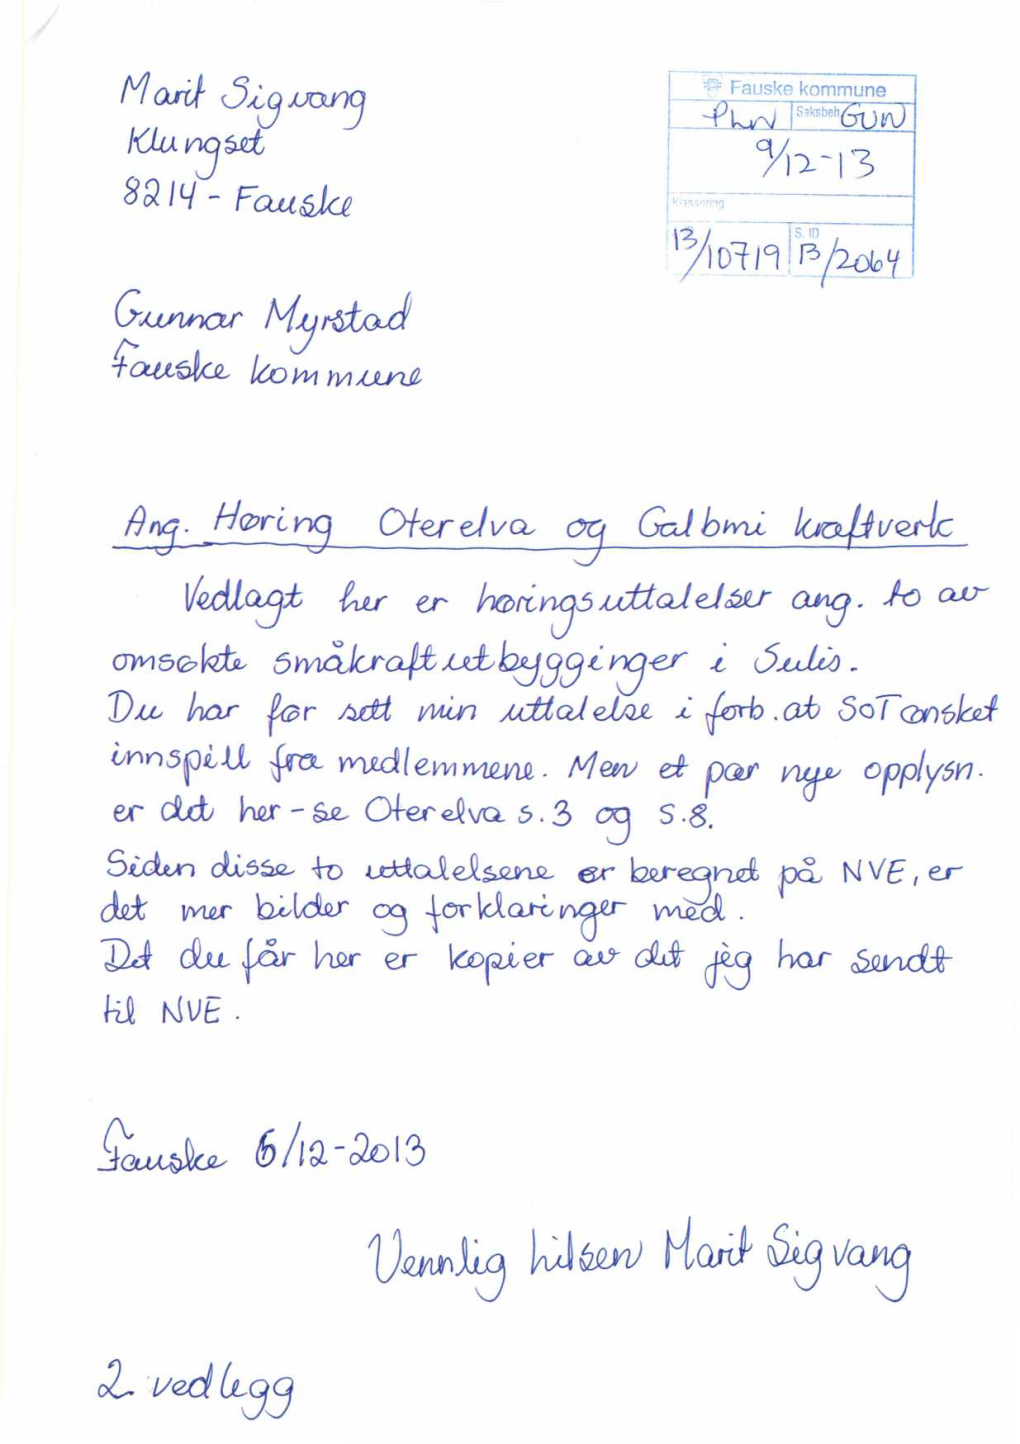 Marit Sigvang
Klungset
8214 - Fauske
Fauske kommune
PLN Saksbeh GUN
9/12-13
Klassering
S. ID
13/10719 13/2064
Gunnar Myrstad
Fauske kommune
Ang. Høring Oterelva og Galbmi kraftverk
Vedlagt her er høringsuttalelser ang. to av
omsøkte småkraftutbygginger i Sulis.
Du har før sett min uttalelse i forb. at SOT ønsket
innspill fra medlemmene. Men et par nye opplysn.
er det her - se Oterelva s.3 og s.8.
Siden disse to uttalelsene er beregnet på NVE, er
det mer bilder og forklaringer med.
Det du får her er kopier av det jeg har sendt
til NVE.
Fauske 6/12-2013
Vennlig hilsen Marit Sigvang
2 vedlegg